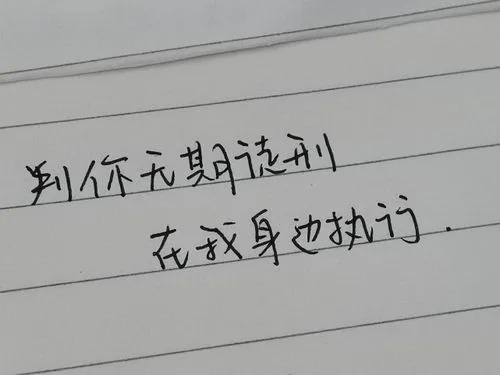 判你无期徒刑
在我身边执行.